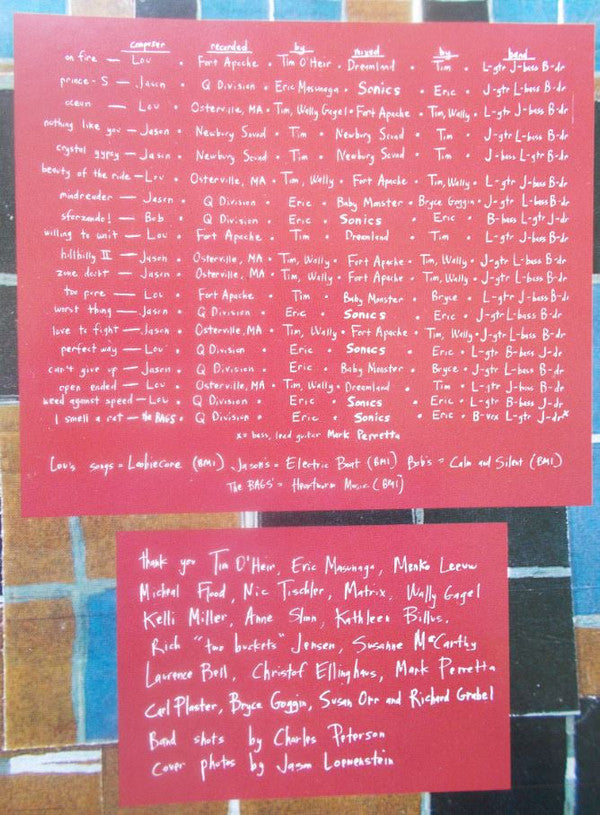 composer recorded by mixed by band
on fire — Lou • Fort Apache • Tim O'Heir • Dreamland • Tim • L-gtr J-bass B-dr
prince-S — Jason • Q Division • Eric Masunaga • Sonics • Eric • J-gtr L-bass B-dr
ocean — Lou • Osterville, MA • Tim, Wally Gagel • Fort Apache • Tim, Wally • L-gtr J-bass B-dr
nothing like you — Jason • Newbury Sound • Tim • Newbury Sound • Tim • J-gtr L-bass B-dr
crystal gypsy — Jason • Newbury Sound • Tim • Newbury Sound • Tim • J-bass L-gtr B-dr
beauty of the ride — Lou • Osterville, MA • Tim, Wally • Fort Apache • Tim, Wally • L-gtr J-bass B-dr
mindreader — Jason • Q Division • Eric • Baby Monster • Bryce Goggin • J-gtr L-bass B-dr
sforzando! — Bob • Q Division • Eric • Sonics • Eric • B-bass L-gtr J-dr
willing to wait — Lou • Fort Apache • Tim • Dreamland • Tim • L-gtr J-bass B-dr
hillbilly II — Jason • Osterville, MA • Tim, Wally • Fort Apache • Tim, Wally • J-gtr L-bass B-dr
zone doubt — Jason • Osterville, MA • Tim, Wally • Fort Apache • Tim, Wally • J-gtr L-bass B-dr
too pure — Lou • Fort Apache • Tim • Baby Monster • Bryce • L-gtr J-bass B-dr
worst thing — Jason • Q Division • Eric • Sonics • Eric • J-gtr L-bass B-dr
love to fight — Jason • Osterville, MA • Tim, Wally • Fort Apache • Tim, Wally • J-gtr L-bass B-dr
perfect way — Lou • Q Division • Eric • Sonics • Eric • L-gtr B-bass J-dr
can't give up — Jason • Q Division • Eric • Baby Monster • Bryce • J-gtr L-bass B-dr
open ended — Lou • Osterville, MA • Tim, Wally • Dreamland • Tim • L-gtr J-bass B-dr
weed against speed — Lou • Q Division • Eric • Sonics • Eric • L-gtr B-bass J-dr
I smell a rat — the BAGS • Q Division • Eric • Sonics • Eric • B-vox L-gtr J-dr x
x = bass, lead guitar Mark Perretta
Lou's songs = Loobiecore (BMI) Jason's = Electric Boat (BMI) Bob's = Calm and Silent (BMI)
The BAGS' = Heartworm Music (BMI)
thank you Tim O'Heir, Eric Masunaga, Menko Leeuw
Micheal Flood, Nic Tischler, Matrix, Wally Gagel
Kelli Miller, Anne Slinn, Kathleen Billus,
Rich "two buckets" Jensen, Susanne McCarthy
Laurence Bell, Christof Ellinghaus, Mark Perretta
Carl Plaster, Bryce Goggin, Susan Orr and Richard Grabel
Band shots by Charles Peterson
Cover photos by Jason Loewenstein